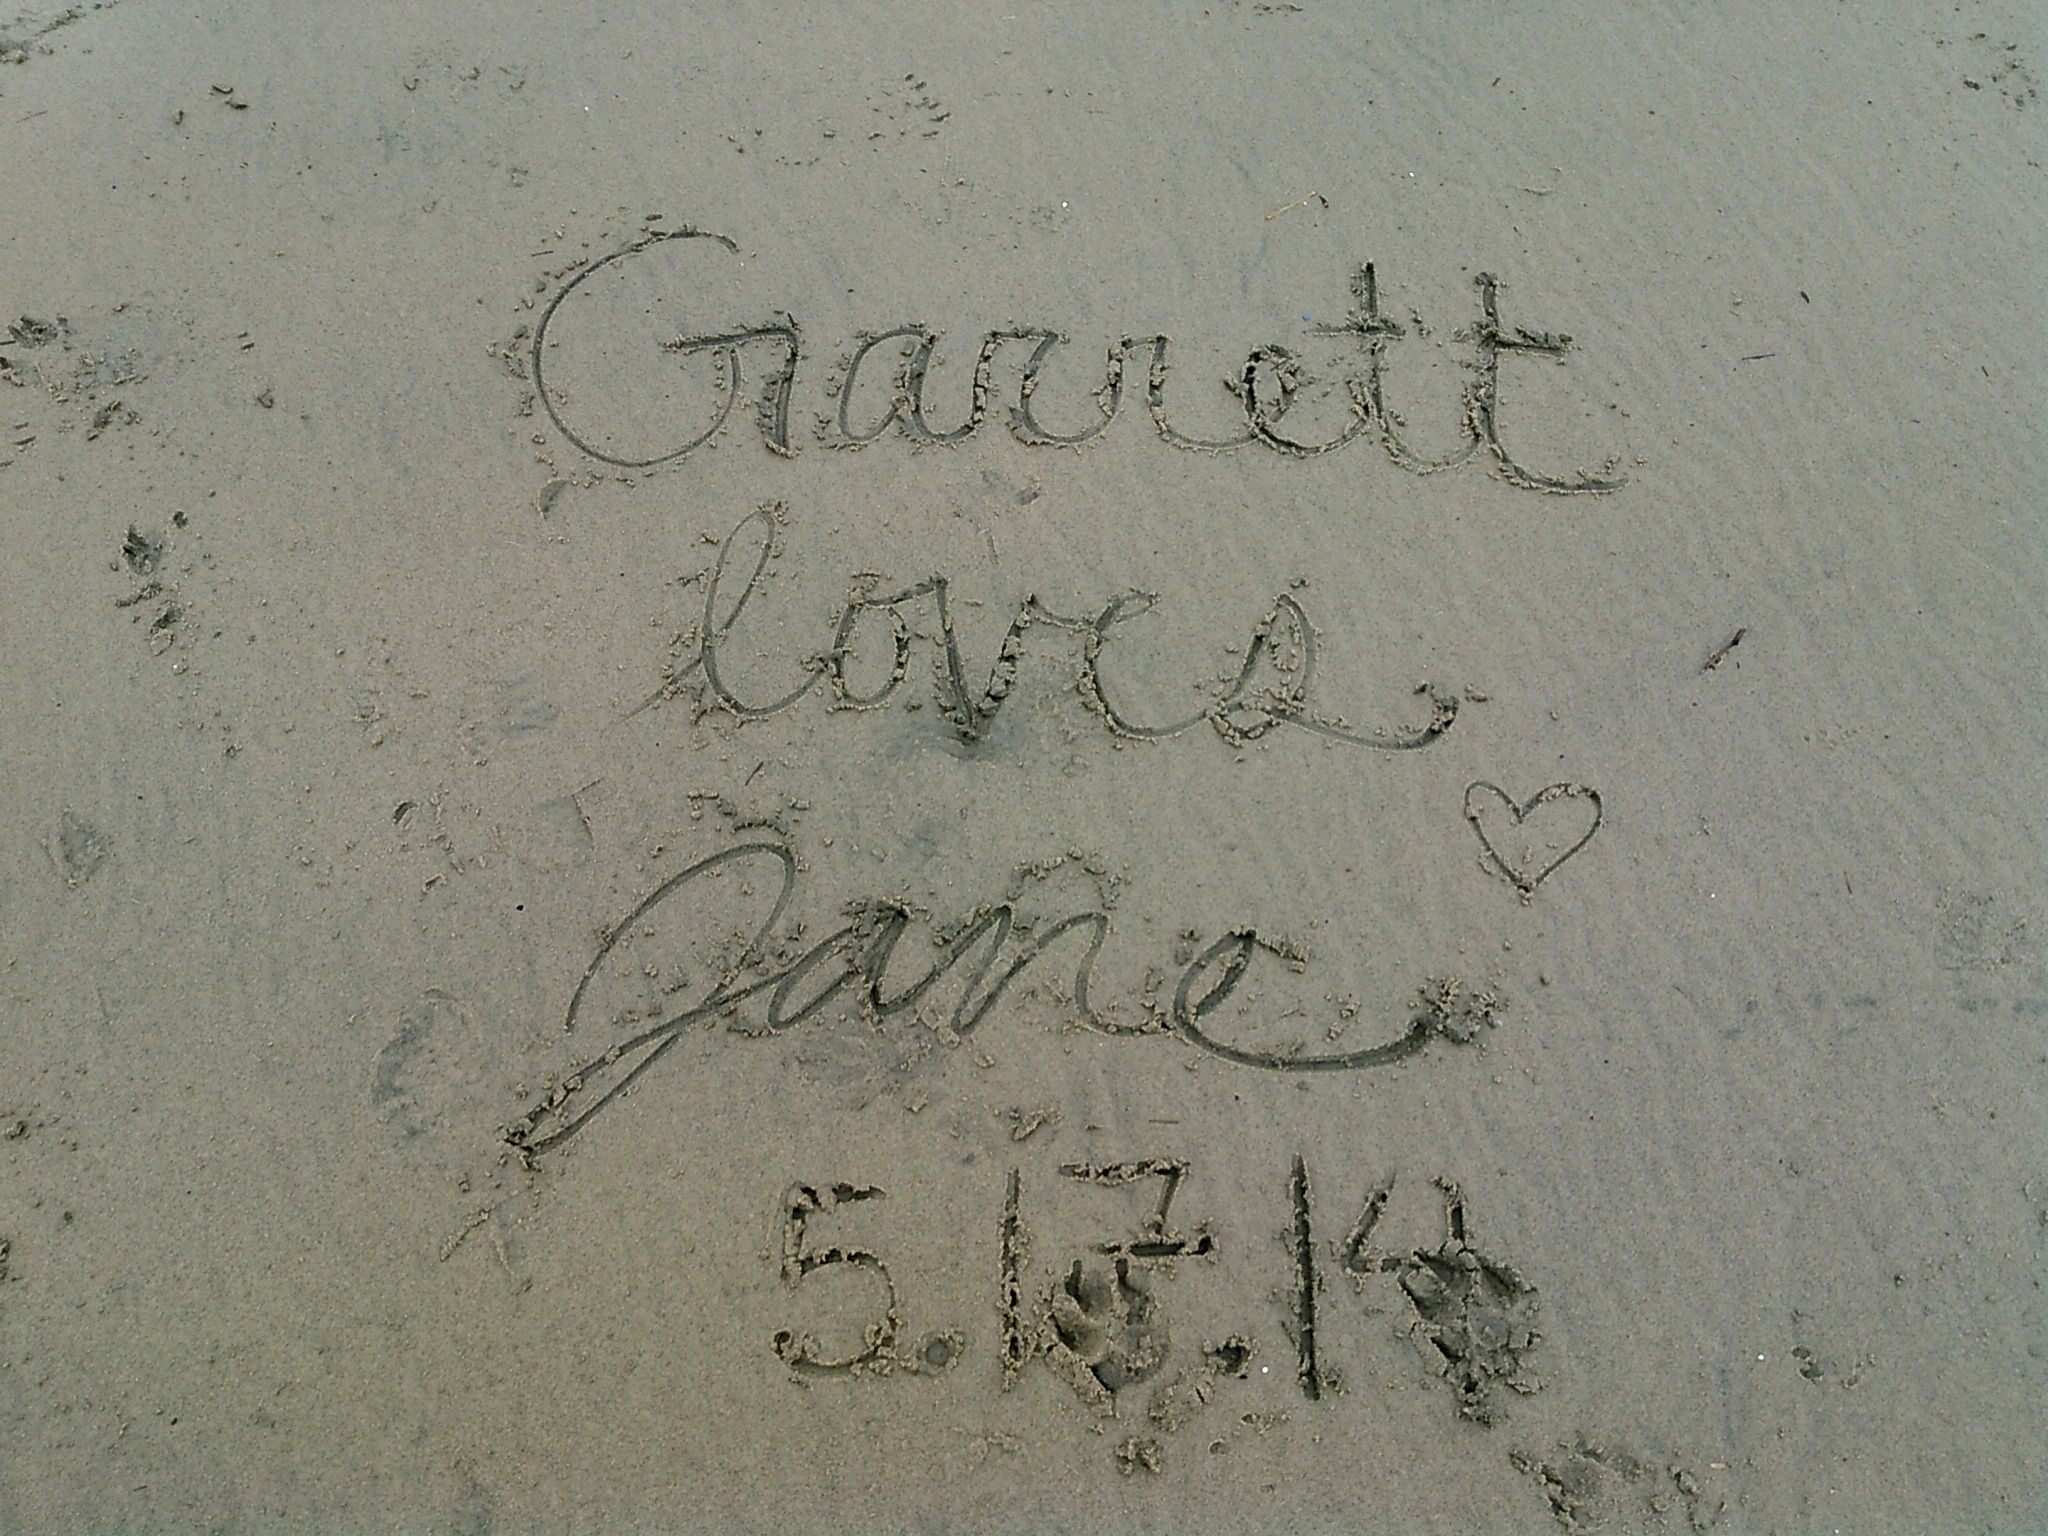 Garrett
loves
Jane
5.17.14